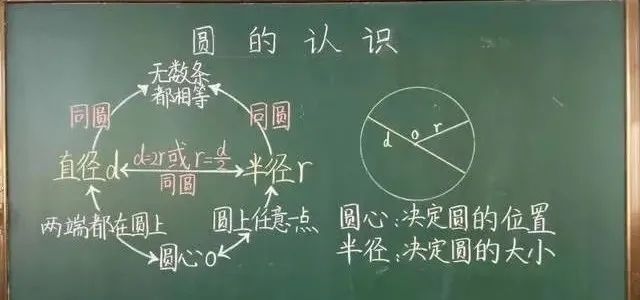 圆的认识
无数条
都相等
同圆 同圆
直径d d=2r或r=d/2 半径r
同圆
两端都在圆上 圆上任意一点
圆心o
d o r
圆心:决定圆的位置
半径:决定圆的大小